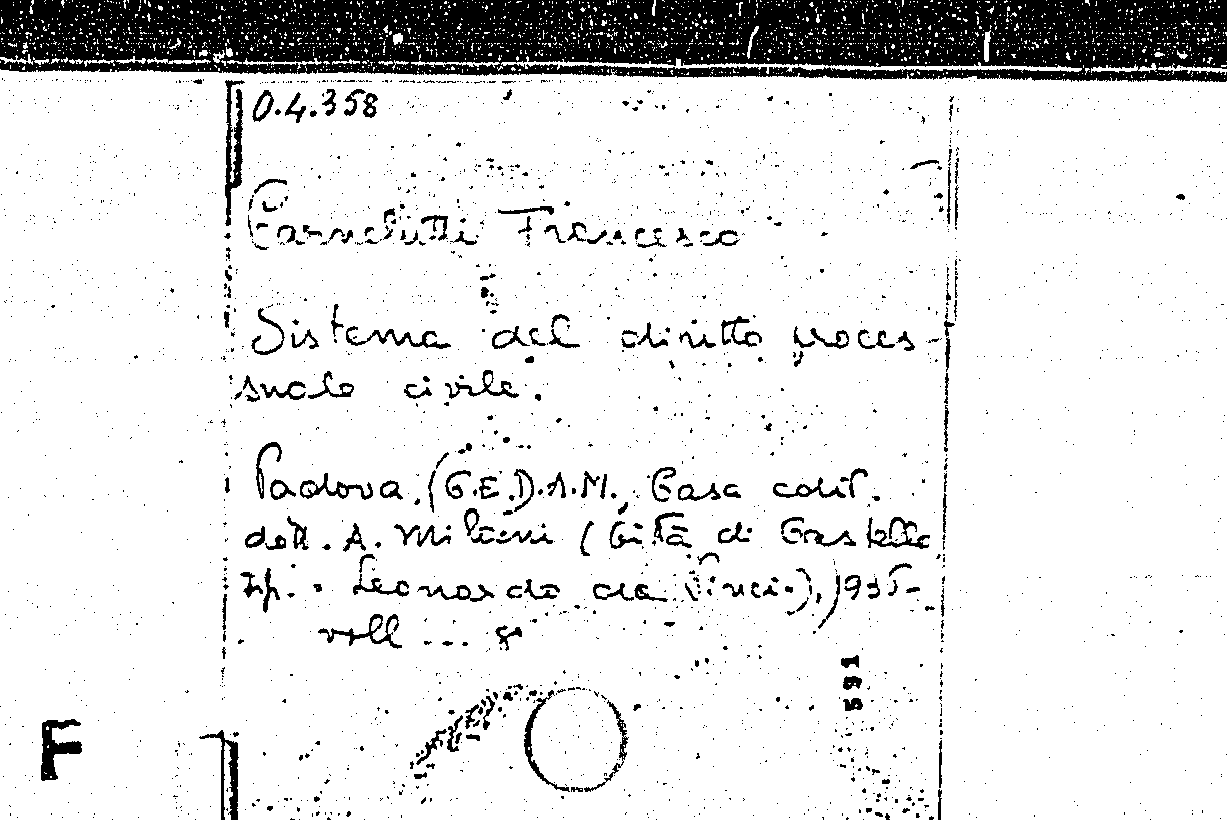 0.4.358
Carnelutti Francesco
Sistema del diritto proces-
suale civile.
Padova, (C.E.D.A.M., Casa edit.
dott. A. Milani (Città di Castello
tip. "Leonardo da Vinci"), 1936-
voll ... 8º
591
F